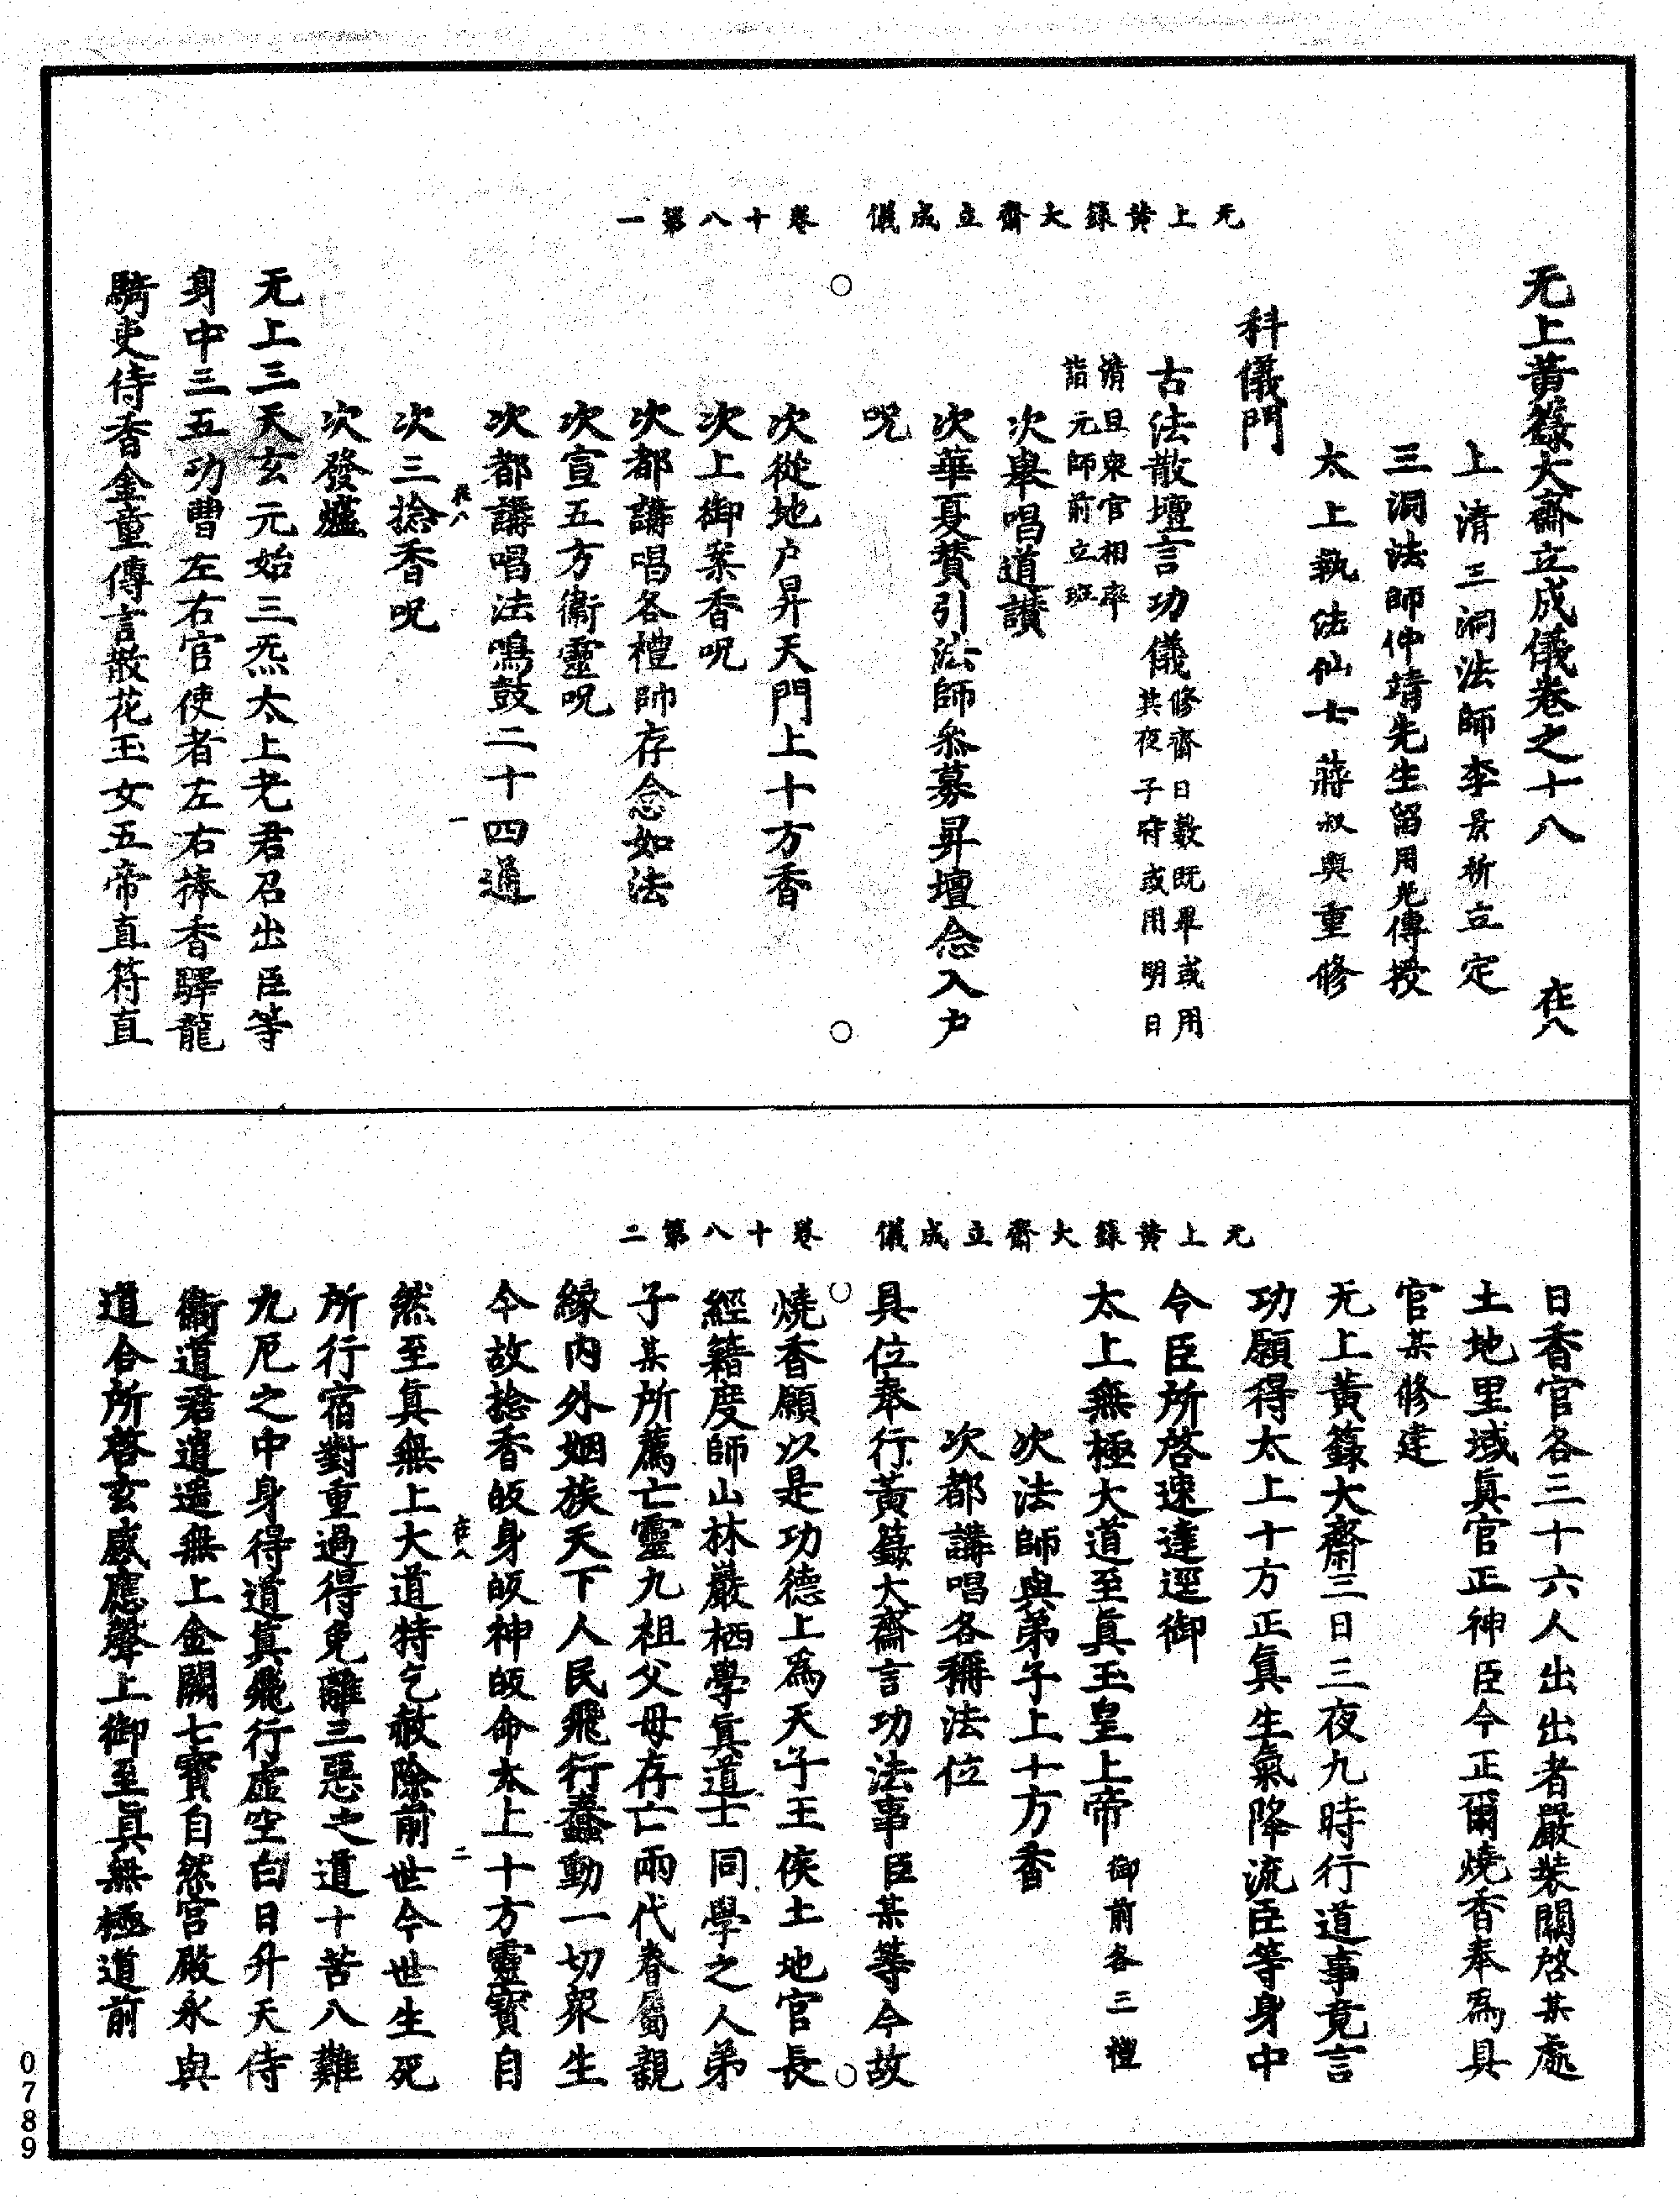 无上黃籙大齋立成儀 卷十八第一
无上黃籙大齋立成儀卷之十八 在八
上清三洞法師李景祈立定
三洞法師仲靖先生留用光傳授
太上執法仙士蔣叔輿重修
科儀門
古法散壇言功儀 修齋日數既畢或用
其夜子時或用明日
清旦眾官相率
詣元師前立班
次舉唱道讚
次華夏贊引法師叅慕昇壇念入户
呪
次從地户昇天門上十方香
次上御案香呪
次都講唱各禮師存念如法
次宣五方衞靈呪
次都講唱法鳴鼓二十四通
在八 一
次三捻香呪
次發爐
无上三天玄元始三炁太上老君召出臣等
身中三五功曹左右官使者左右捧香驛龍
騎吏侍香金童傳言散花玉女五帝直符直
无上黃籙大齋立成儀 卷十八第二
日香官各三十六人出出者嚴裝關啓某處
土地里域眞官正神臣今正爾燒香奉爲具
官某修建
无上黃籙大齋三日三夜九時行道事竟言
功願得太上十方正眞生氣降流臣等身中
令臣所啓速達逕御
太上無極大道至眞玉皇上帝 御前各三禮
次法師與弟子上十方香
次都講唱各稱法位
具位奉行黃籙大齋言功法事臣某等今故
燒香願以是功德上爲天子王侯土地官長
經籍度師山林巖栖學眞道士同學之人弟
子某所薦亡靈九祖父母存亡兩代眷屬親
緣内外姻族天下人民飛行蠢動一切衆生
今故捻香皈身皈神皈命太上十方靈寶自
在八 二
然至眞無上大道特乞赦除前世今世生死
所行宿對重過得免離三惡之道十苦八難
九厄之中身得道眞飛行虛空白日升天侍
衞道君逍遥無上金闕七寶自然宮殿永與
道合所啓玄感應聲上御至眞無極道前
0789